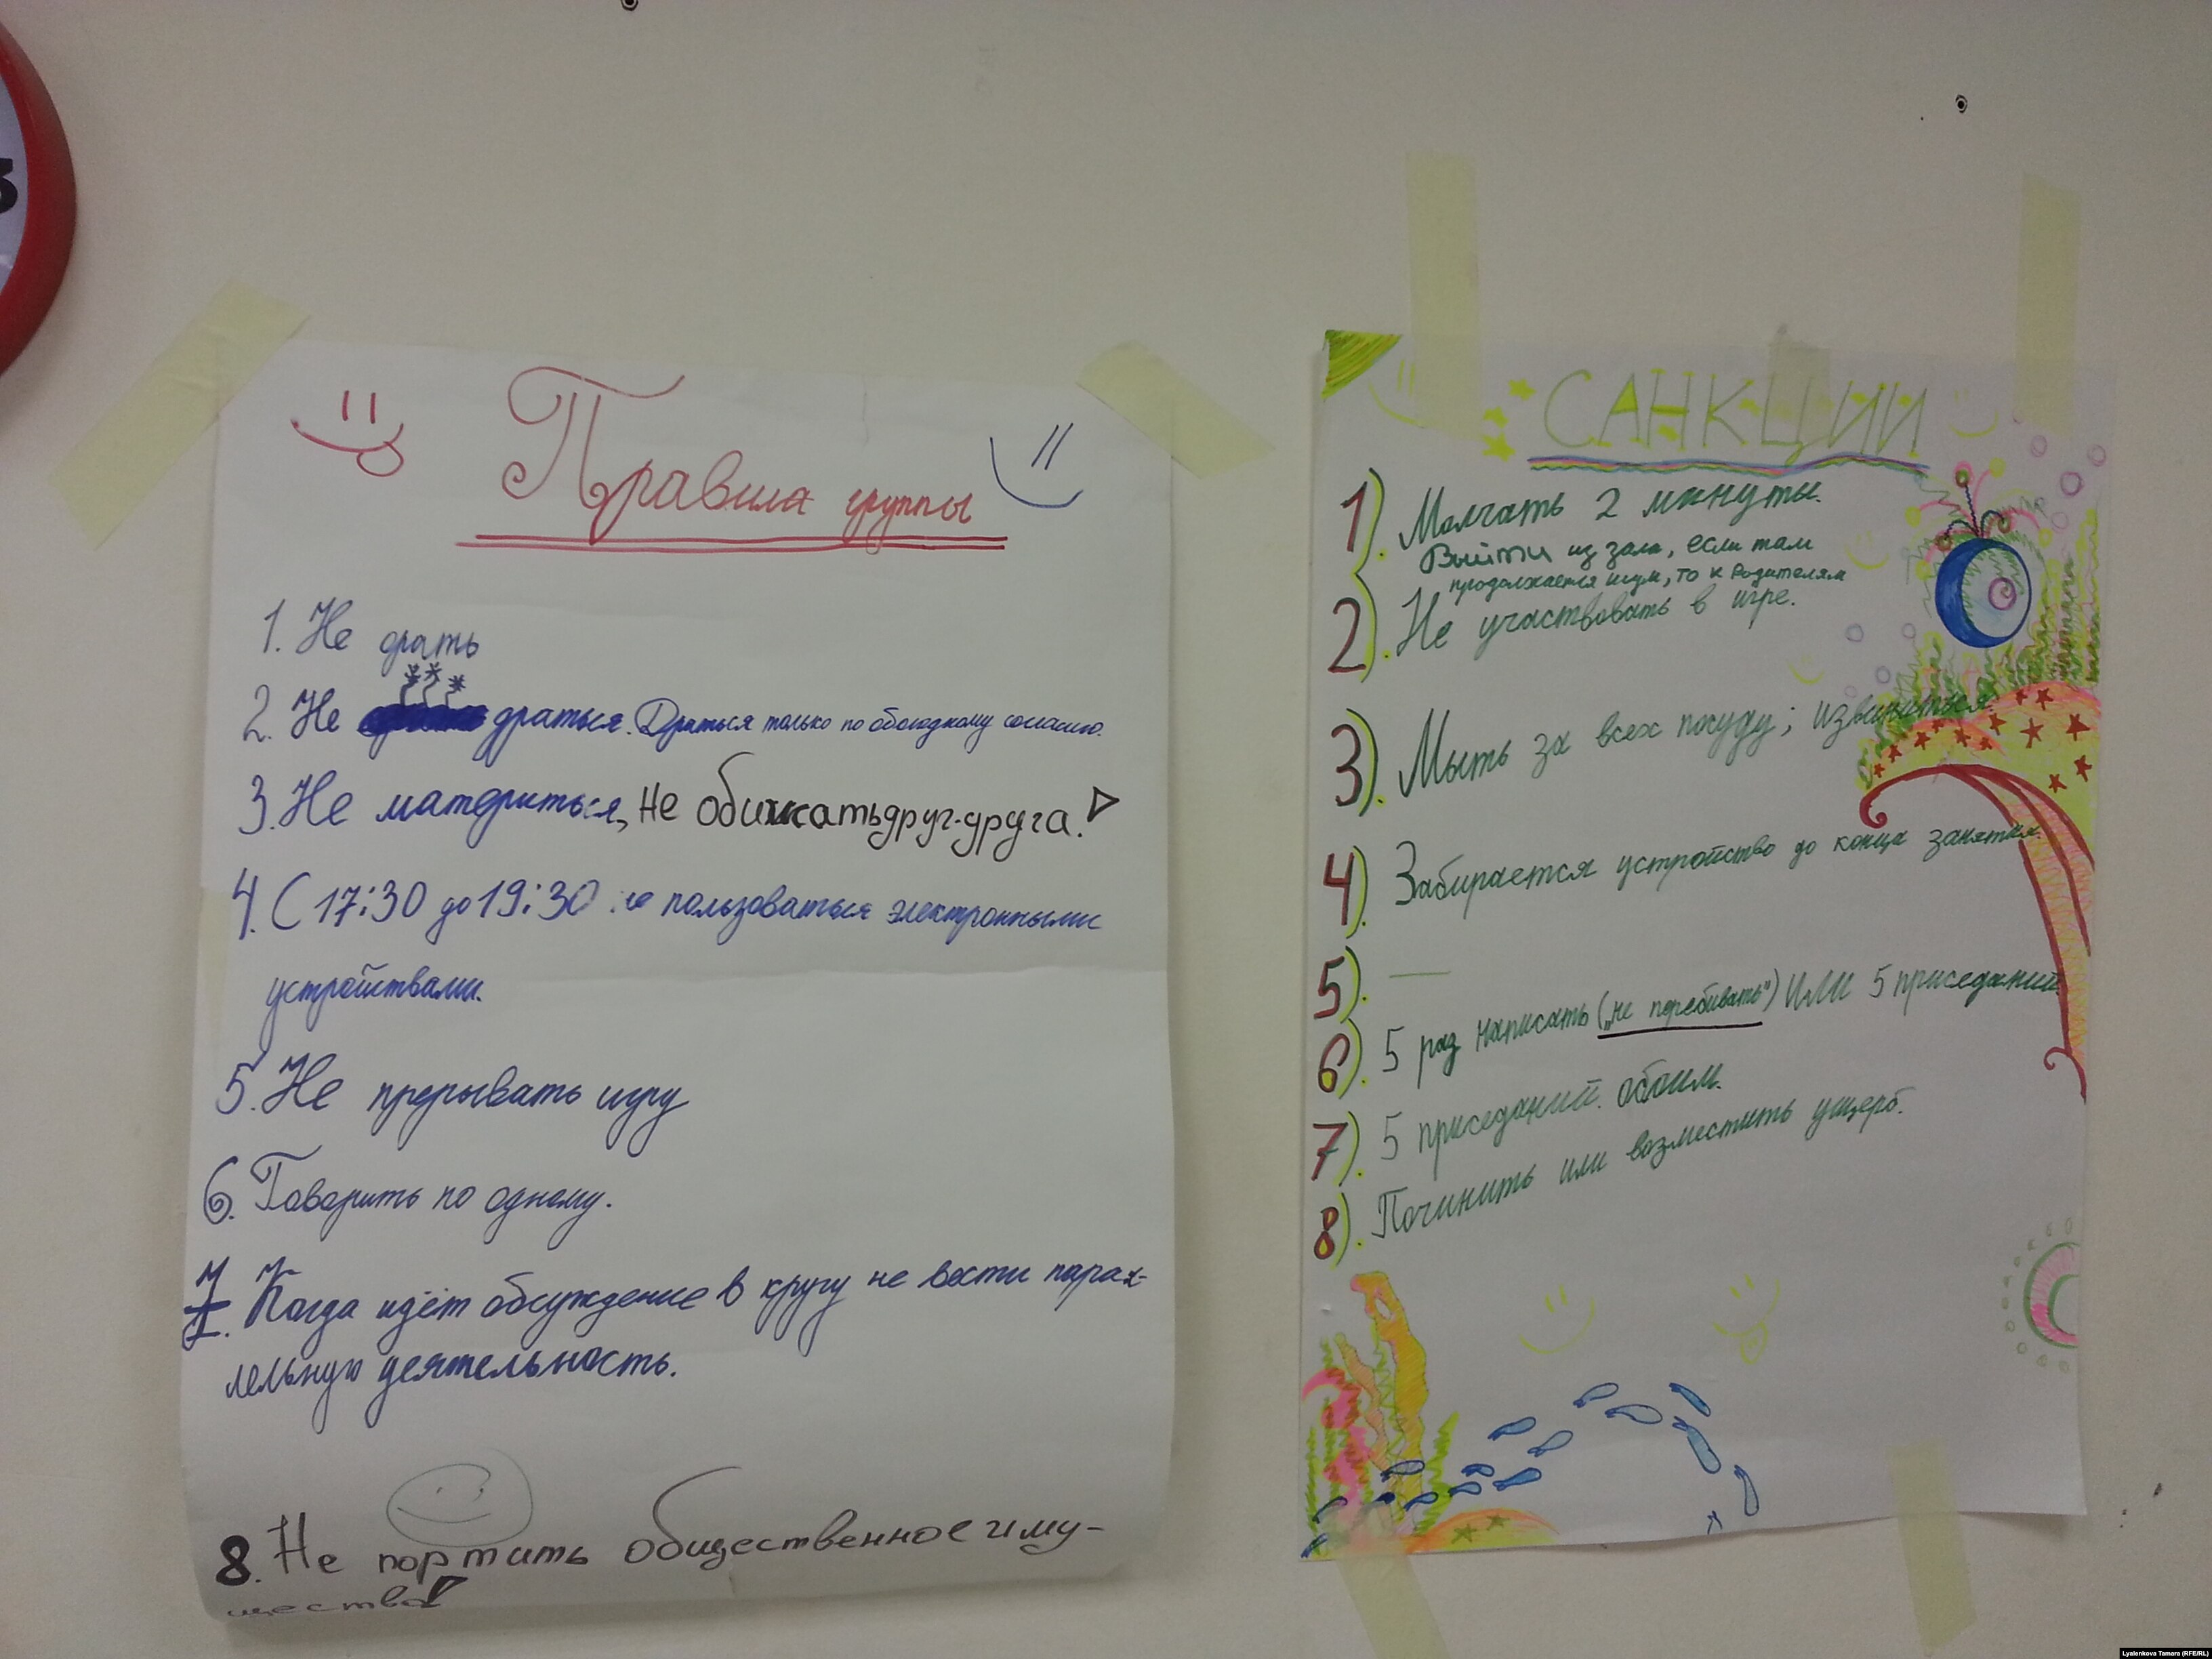 3
Правила группы
1. Не орать
2. Не драться. Драться только по обоюдному согласию.
3. Не материться, не обижать друг-друга!
4. С 17:30 до 19:30 не пользоваться электронными
устройствами.
5. Не прерывать игру
6. Говорить по одному.
7. Когда идёт обсуждение в кругу не вести парал-
лельную деятельность.
8. Не портить общественное иму-
щество!
САНКЦИИ
1). Молчать 2 минуты.
Выйти из зала, если там
продолжается шум, то к родителям
2). Не участвовать в игре.
3). Мыть за всех посуду; извиниться.
4). Забирается устройство до конца занятия.
5). —
6). 5 раз написать („не перебивать“) ИЛИ 5 приседаний.
7). 5 приседаний. обоим.
8). Починить или возместить ущерб.
Lyalenkova Tamara (RFE/RL)